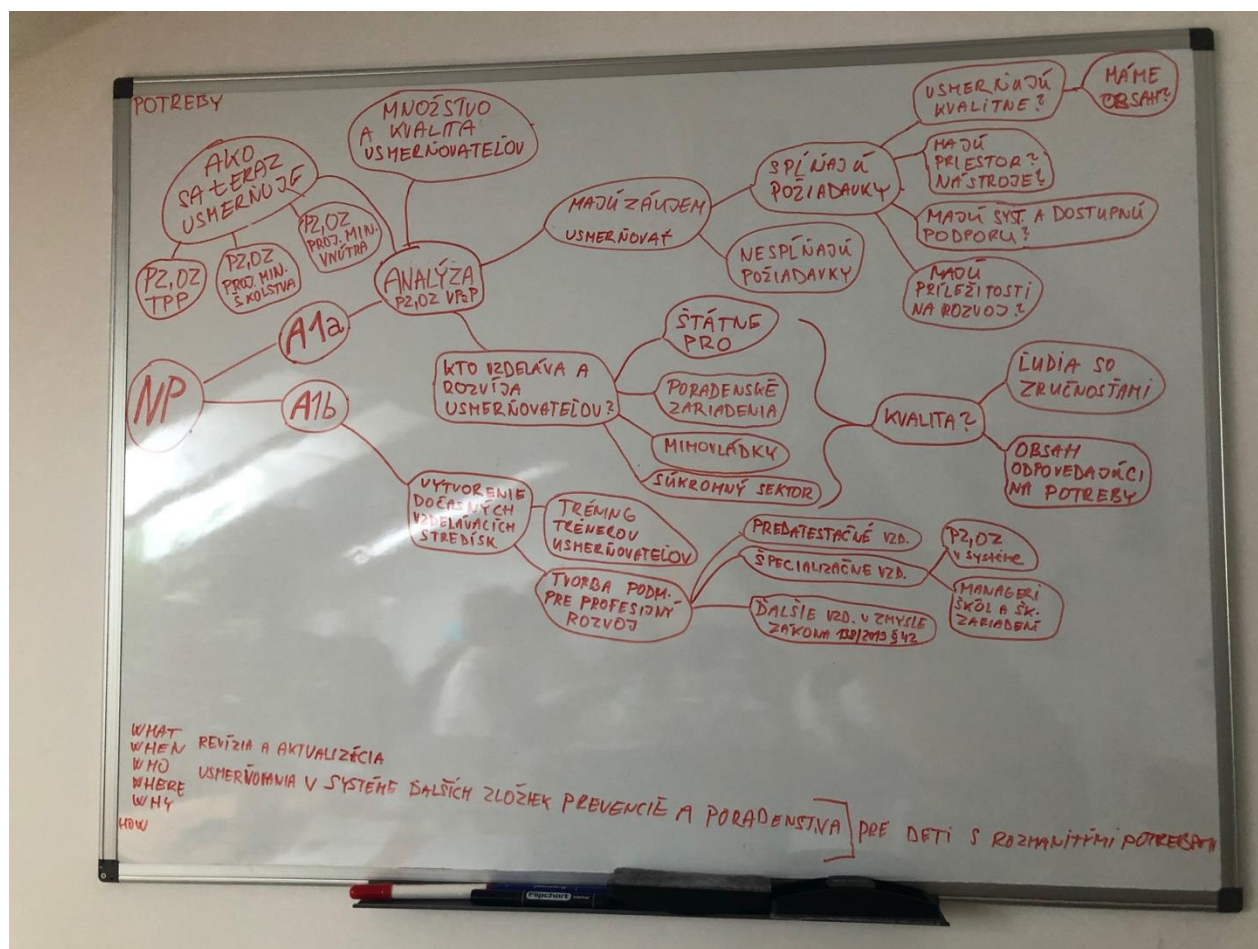 POTREBY
AKO
SA TERAZ
USMERŇUJE
PZ, OZ
TPP
PZ, OZ
PROJ. MIN.
ŠKOLSTVA
PZ, OZ
PROJ. MIN.
VNÚTRA
MNOŽSTVO
A KVALITA
USMERŇOVATEĽOV
NP
A1a
ANALÝZA
PZ, OZ VPaP
MAJÚ ZÁUJEM
USMERŇOVAŤ
SPĹŇAJÚ
POŽIADAVKY
USMERŇUJÚ
KVALITNE?
MÁME
OBSAH?
MAJÚ
PRIESTOR?
NÁSTROJE?
MAJÚ SYST. A DOSTUPNÚ
PODPORU?
MAJÚ
PRÍLEŽITOSTI
NA ROZVOJ?
NESPĹŇAJÚ
POŽIADAVKY
KTO VZDELÁVA A
ROZVÍJA
USMERŇOVATEĽOV?
ŠTÁTNE
PRO
PORADENSKÉ
ZARIADENIA
MIMOVLÁDKY
SÚKROMNÝ SEKTOR
KVALITA?
ĽUDIA SO
ZRUČNOSŤAMI
OBSAH
ODPOVEDAJÚCI
NA POTREBY
A1b
VYTVORENIE
DOČASNÝCH
VZDELÁVACÍCH
STREDÍSK
TRÉNING
TRÉNEROV
USMERŇOVATEĽOV
TVORBA PODM.
PRE PROFESIJNÝ
ROZVOJ
PREDATESTAČNÉ VZD.
ŠPECIALIZAČNÉ VZD.
PZ, OZ
v systéme
MANAGERI
ŠKÔL A ŠK.
ZARIADENÍ
ĎALŠIE VZD. V ZMYSLE
ZÁKONA 138/2019 §42
WHAT
WHEN REVÍZIA A AKTUALIZÁCIA
WHO
WHERE USMERŇOVANIA V SYSTÉME ĎALŠÍCH ZLOŽIEK PREVENCIE A PORADENSTVA] PRE DETI S ROZMANITÝMI POTREBAMI
WHY
HOW
Flipchart